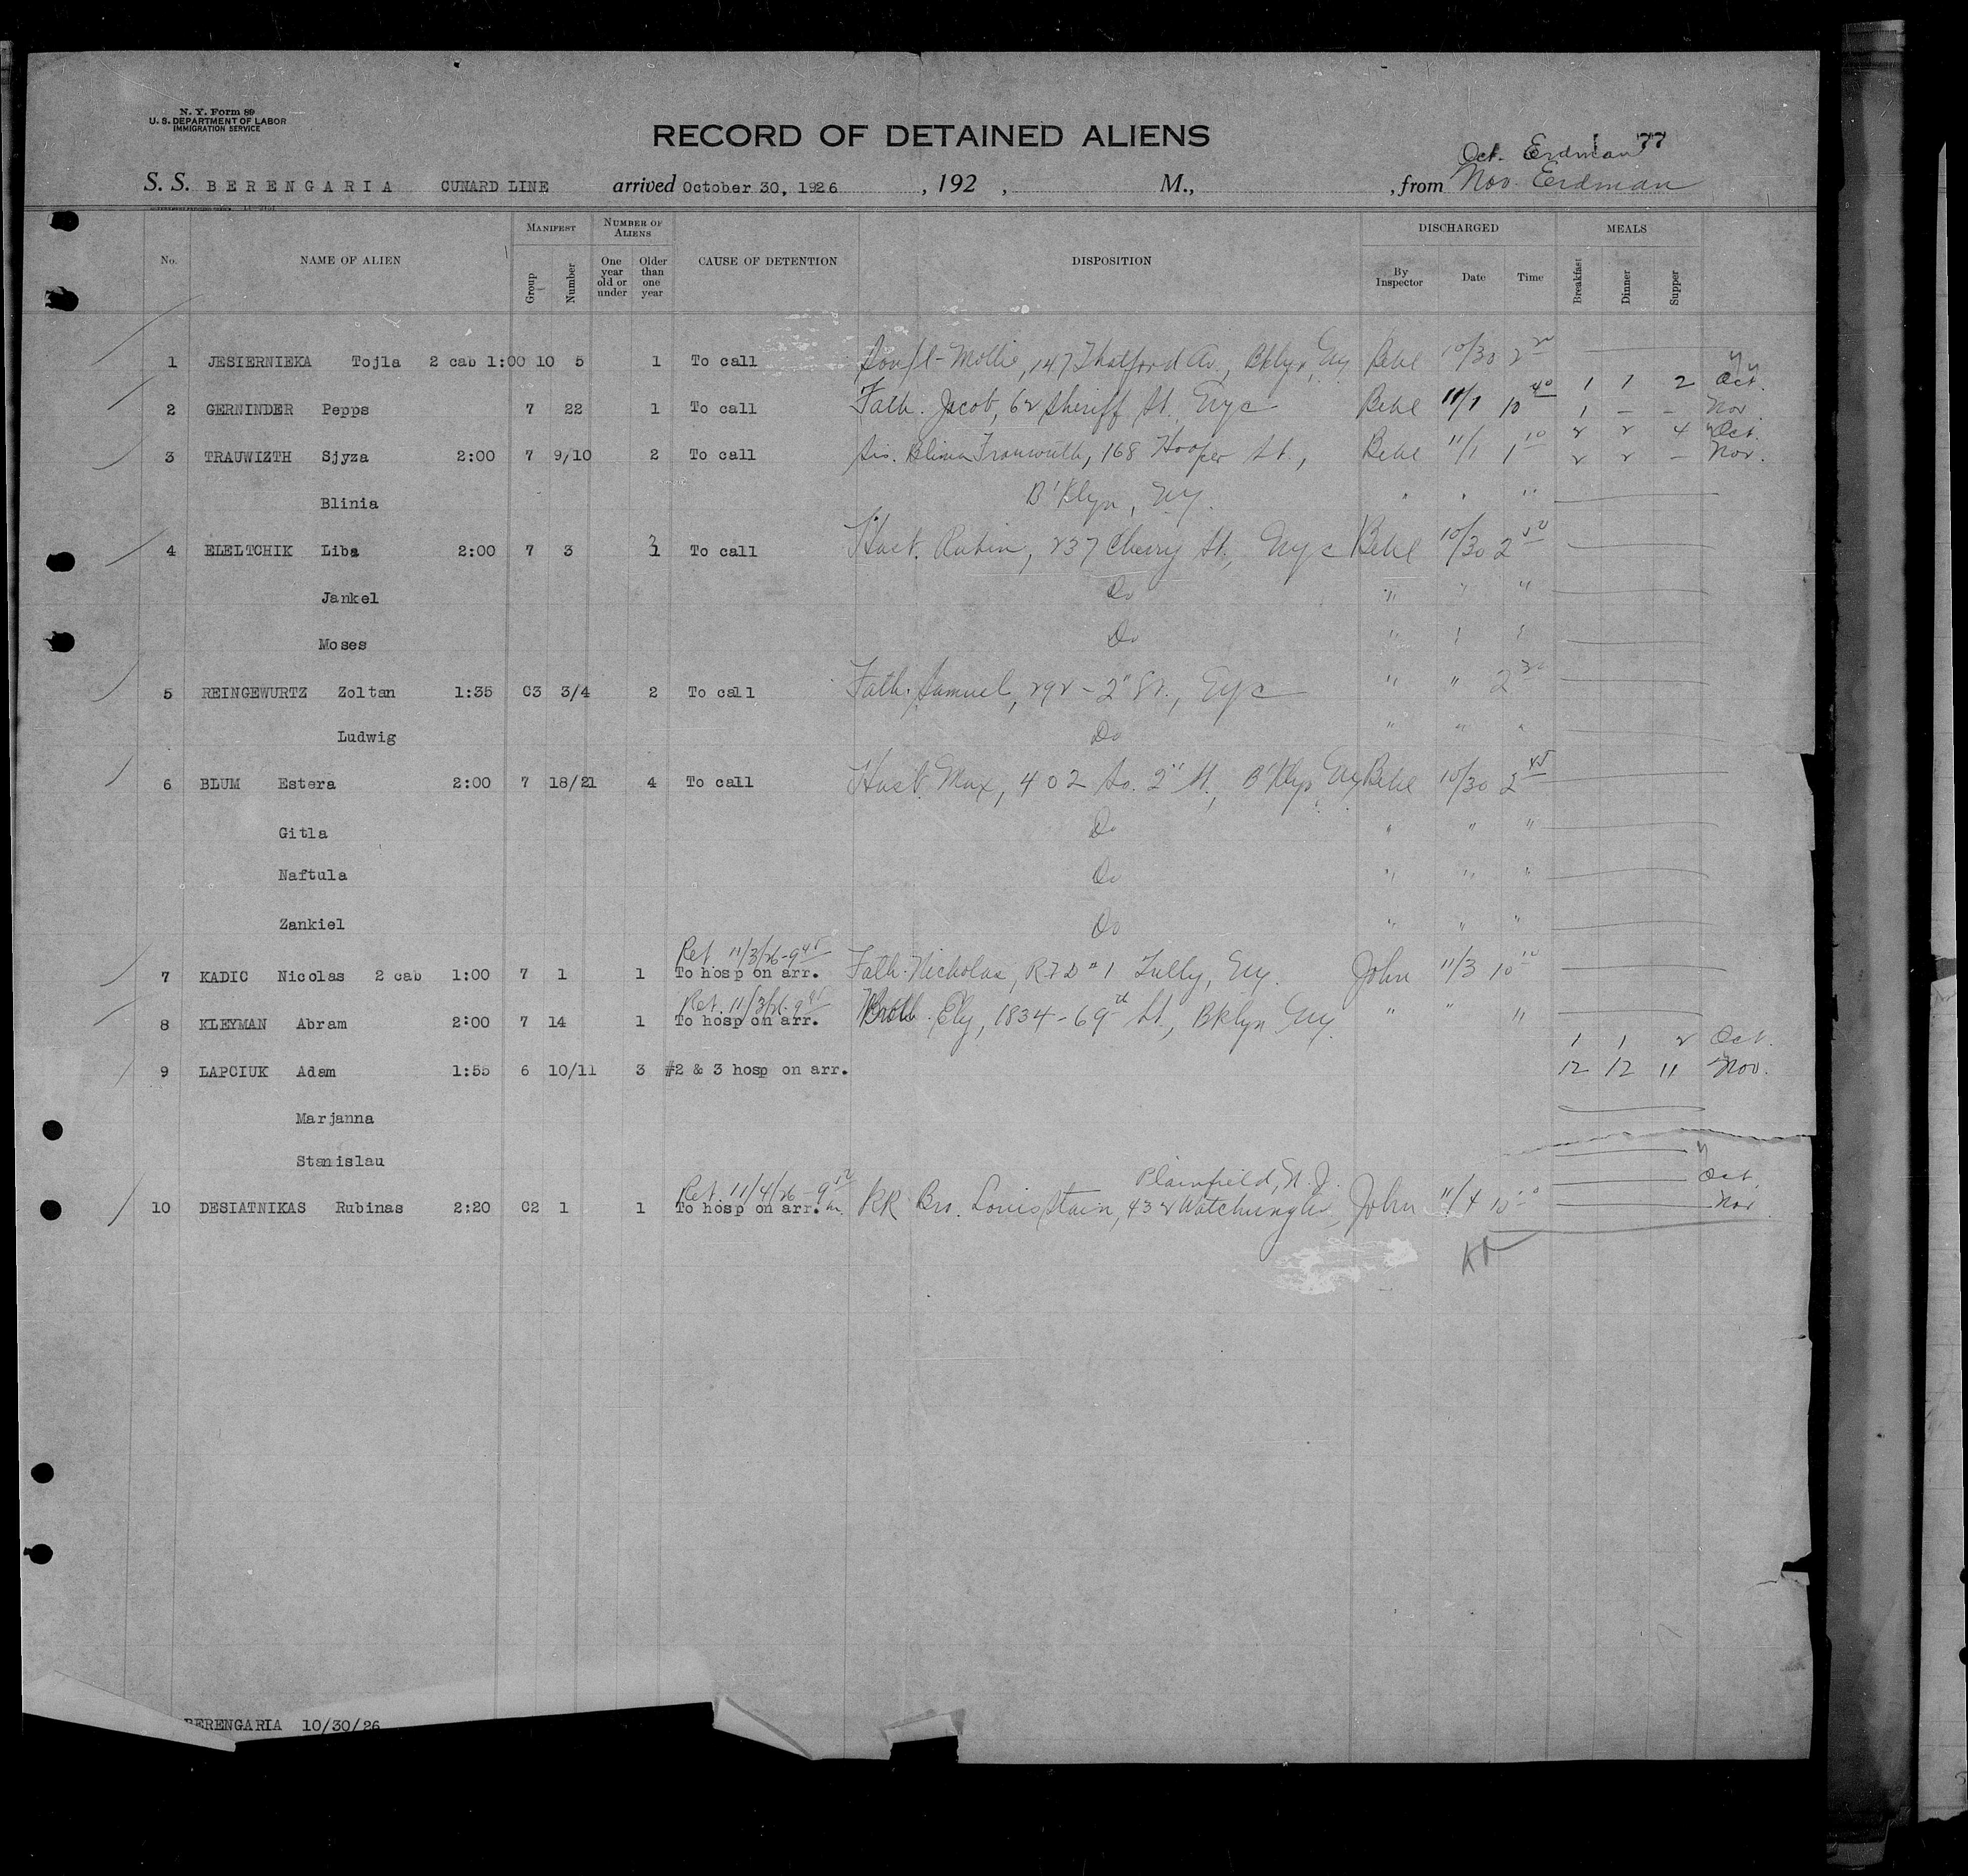 N. Y. Form 89
U. S. DEPARTMENT OF LABOR
IMMIGRATION SERVICE
RECORD OF DETAINED ALIENS
77
Oct. Erdman
S. S. BERENGARIA CUNARD LINE arrived October 30, 1926, 192 , M., , from Nov. Erdman
No. NAME OF ALIEN MANIFEST Group Number NUMBER OF ALIENS One year old or under Older than one year CAUSE OF DETENTION DISPOSITION DISCHARGED By Inspector Date Time MEALS Breakfast Dinner Supper
1 JESIERNIEKA Tojla 2 cab 1:00 10 5 1 To call Mollie, 147 Thatford Av., Bklyn, Ny Behl 10/30 2 20
1 1 2 Oct.
2 GERNINDER Pepps 7 22 1 To call Fath. Jacob, 62 Sheriff St. Nyc Behl 11/1 10 40 1 - - Nov.
2 2 4 Oct.
3 TRAUWIZTH Sjyza 2:00 7 9/10 2 To call Sis. Blima Trauwuth, 168 Hooper St., Behl 11/1 1 10 2 2 - Nov.
Blinia B'klyn, Ny. " " "
4 ELELTCHIK Liba 2:00 7 3 1 3 To call Husb. Rubin, 237 Cherry St., Nyc Behl 10/30 2
Jankel Do " " "
Moses Do " " "
5 REINGEWURTZ Zoltan 1:35 C3 3/4 2 To call Fath. Samuel, 292 - 2" St., Nyc " " 2 30
Ludwig Do " " "
6 BLUM Estera 2:00 7 18/21 4 To call Husb. Max, 402 So. 2" St., B'klyn, Ny Behl 10/30 2 45
Gitla Do " " "
Naftula Do " " "
Zankiel Do " " "
Ret. 11/3/26-9 45
7 KADIC Nicolas 2 cab 1:00 7 1 1 To hosp on arr. Fath. Nicholas, RFD #1 Tully, Ny. John 11/3 10 10
Ret. 11/3/26-9 45
8 KLEYMAN Abram 2:00 7 14 1 To hosp on arr. Broth. Ely, 1834-69th St, Bklyn Ny " "
1 1 2 Oct.
9 LAPCIUK Adam 1:55 6 10/11 3 #2 & 3 hosp on arr. 12 12 11 Nov.
Marjanna
Stanislau
Ret. 11/4/26-9 Plainfield, N. J. Oct.
10 DESIATNIKAS Rubinas 2:20 C2 1 1 To hosp on arr. RR Bro. Louis Stain, 432 Watchung Av, John 11/4 10 Nov.
BERENGARIA 10/30/26